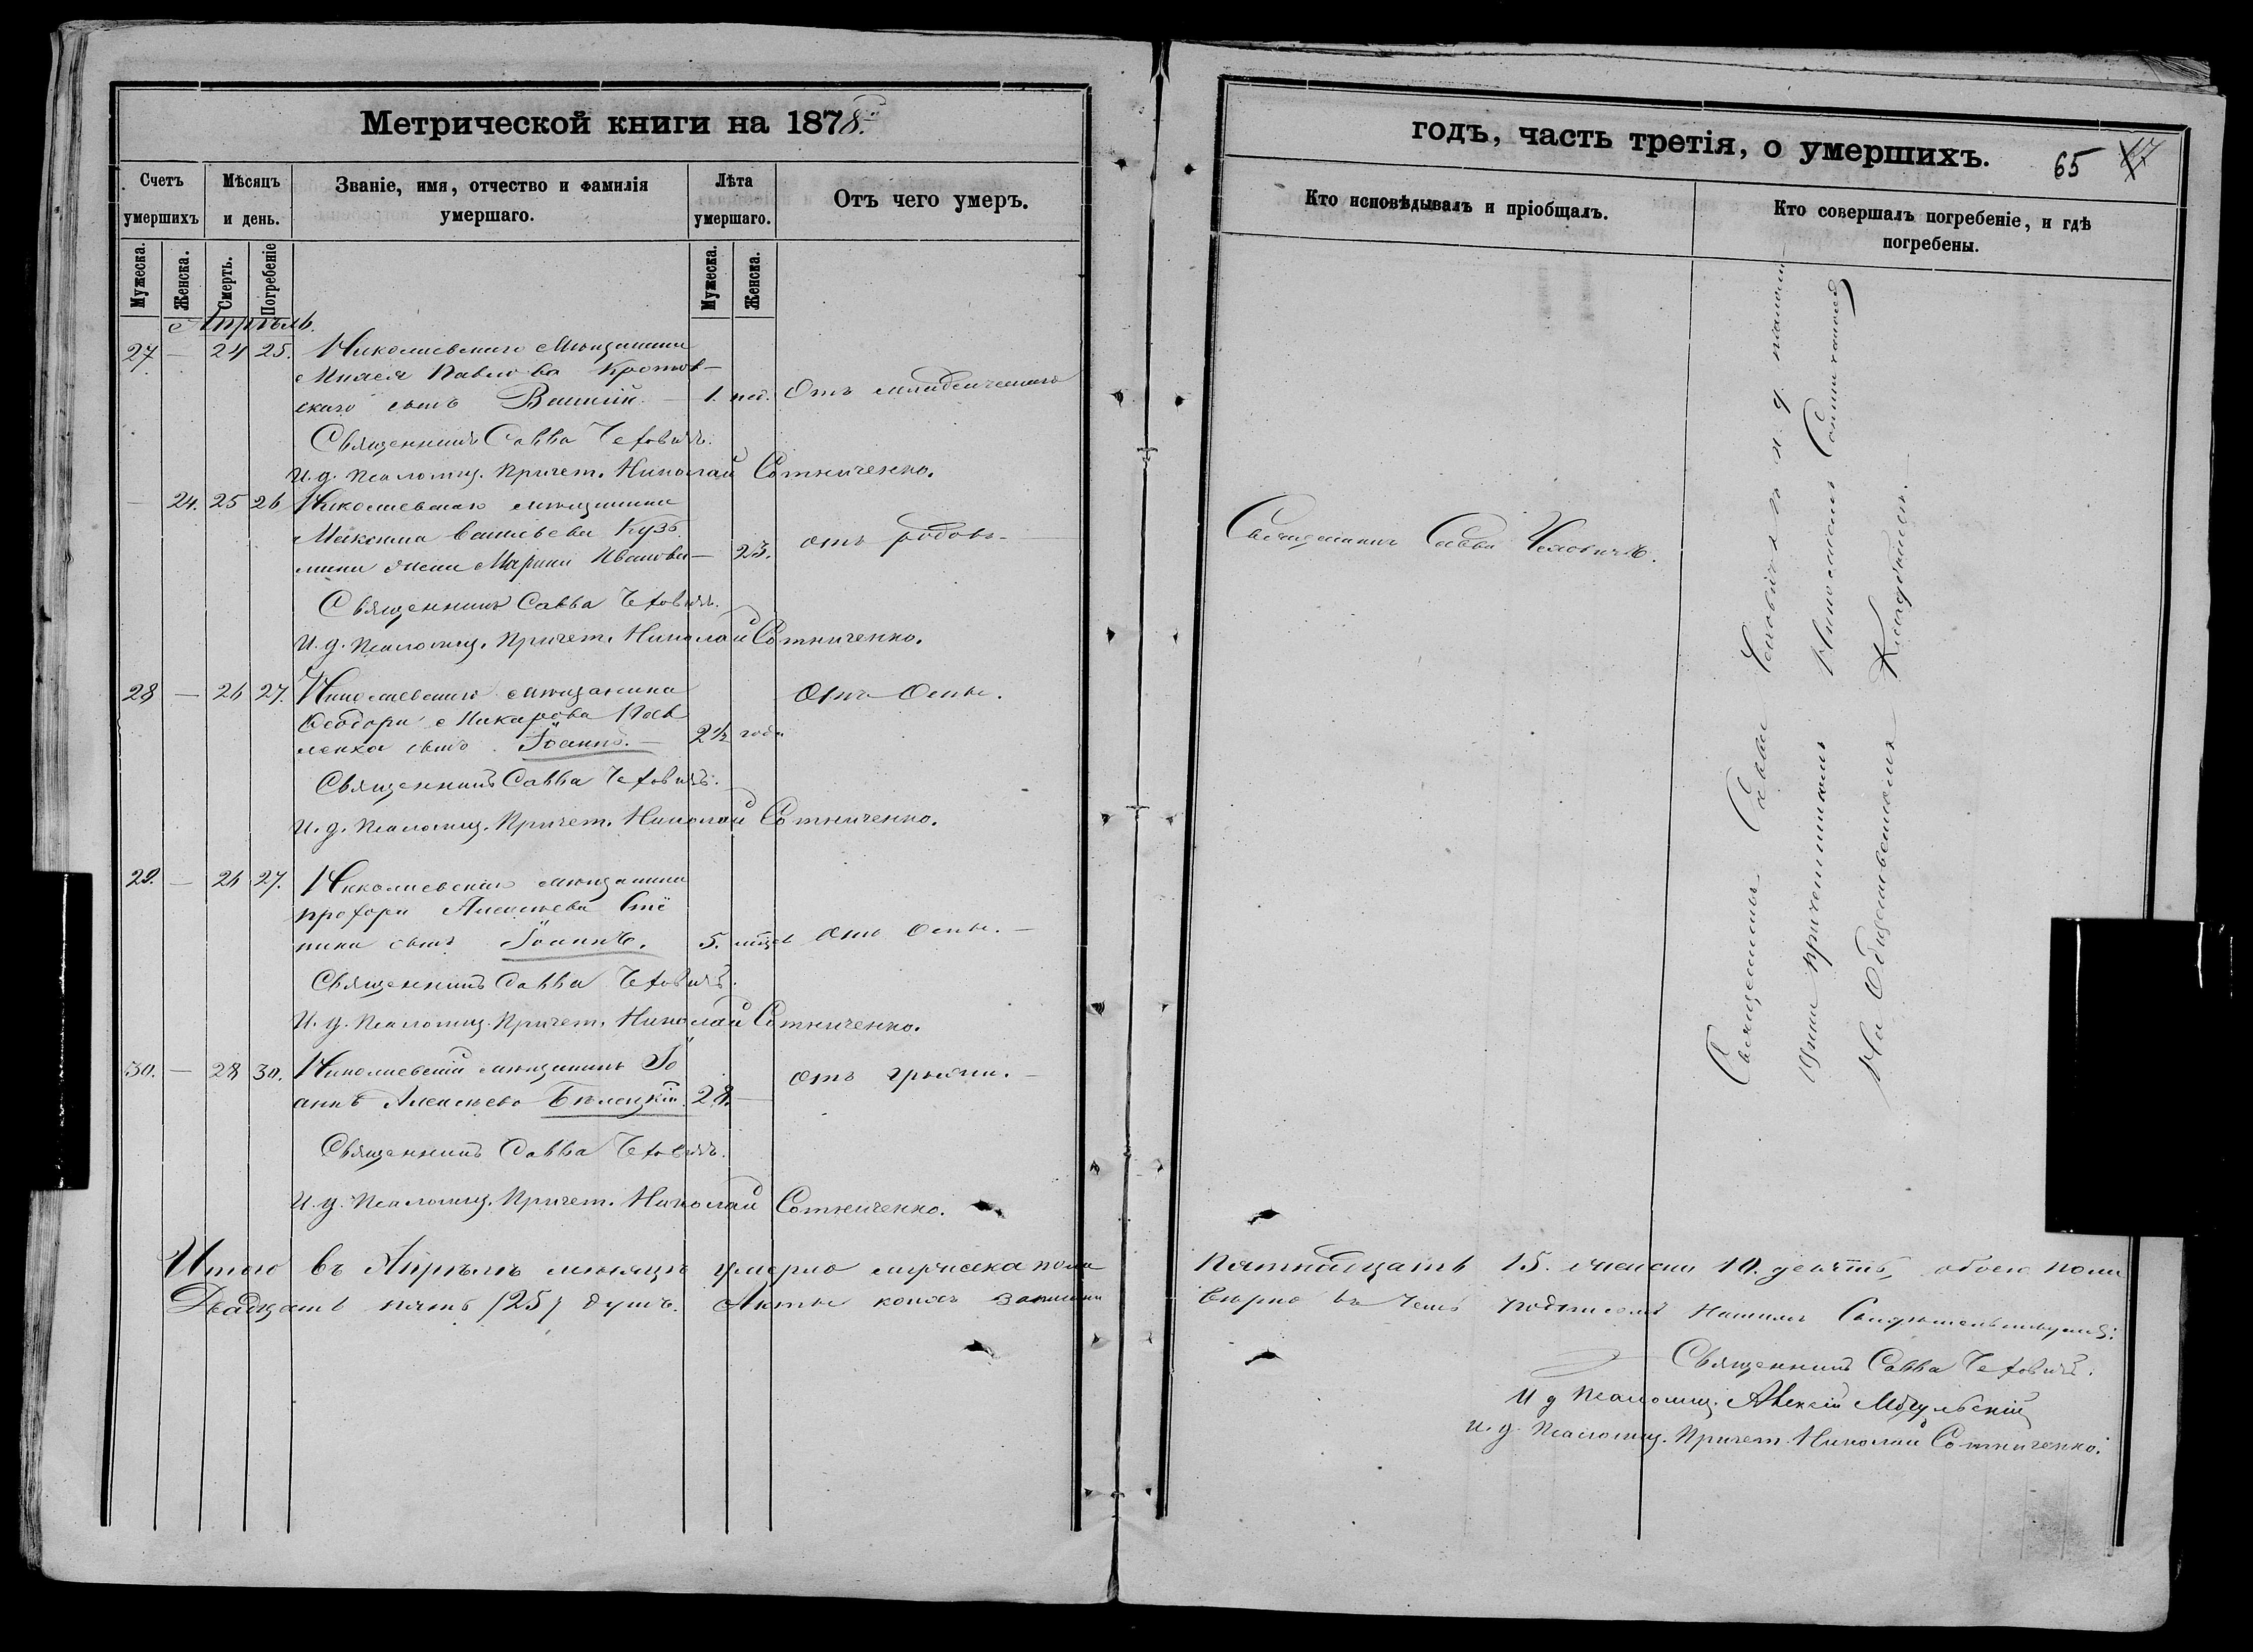 Метрической книги на 1878.
Счетъ умершихъ
Мѣсяцъ и день.
Званіе, имя, отчество и фамилія умершаго.
Лѣта умершаго.
Отъ чего умеръ.
Мужеска.
Женска.
Смерть.
Погребеніе
Мужеска.
Женска.
Апрѣль.
27. — 24 25. Николаевскаго мѣщанина
Павлова Кротов-
скаго сынъ — 1. нед. Отъ младенческаго
Священникъ Савва Чехович.
И. д. Псаломщ. Причет. Николай Сотниченко.
— 24. 25 26 Николаевскаго мѣщанина
Максима Васильева Кузь
мина жена Марина Иванова — 23. отъ родовъ —
Священникъ Савва Чехович.
И. д. Псаломщ. Причет. Николай Сотниченко.
28 — 26 27. Николаевскаго мѣщанина Отъ Оспы.
Ѳеодора Макарова Пав
ленка сынъ Іоаннъ. — 2½ года
Священникъ Савва Чехович.
И. д. Псаломщ. Причет. Николай Сотниченко.
29. — 26 27. Николаевскаго мѣщанина
Прохора Алексѣева
сынъ Іоаннъ. 5. мѣсц Отъ Оспы. —
Священникъ Савва Чехович.
И. д. Псаломщ. Причет. Николай Сотниченко.
30. — 28 30. Николаевскій мѣщанинъ Іо
аннъ Алексѣевъ Бѣлецкій. 28. — отъ грыжи. —
Священникъ Савва Чехович.
И. д. Псаломщ. Причет. Николай Сотниченко.
Итого въ Апрѣлѣ мѣсяцѣ умерло мужеска пола
Двадцать пять /25/ душъ. Акты коихъ записаны
годъ, часть третія, о умершихъ.
65
17
Кто исповѣдывалъ и пріобщалъ.
Кто совершалъ погребеніе, и гдѣ погребены.
Священникъ Савва Чеховичъ.
Священникъ Савва Чеховичъ и д.
причетникомъ Николаемъ Сотниченко
На Общественномъ Кладбищѣ.
Пятнадцать 15. женска 10. десять, обоего пола
вѣрно въ чемъ подписомъ нашимъ Свидѣтельствуемъ:
Священникъ Савва Чехович.
И д Псаломщ. Алексій Могульскій
И. д. Псаломщ. Причет. Николай Сотниченко.